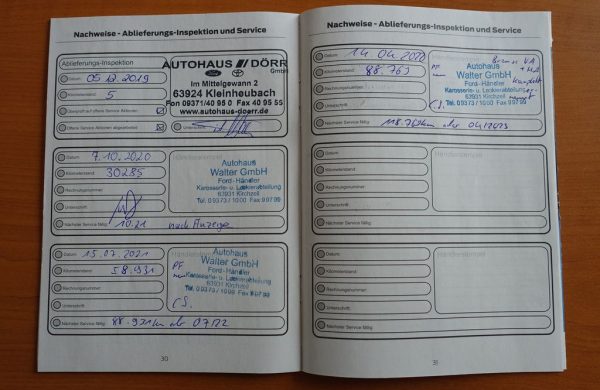 Nachweise - Ablieferungs-Inspektion und Service
Ablieferungs-Inspektion
Datum 05.12.2019
Kilometerstand 5
Überprüft auf offene Service Aktionen
Offene Service Aktionen abgearbeitet
Unterschrift
AUTOHAUS DÖRR
GmbH
Ford
Im Mittelgewann 2
63924 Kleinheubach
Fon 09371/40 95 0 Fax 40 95 55
www.autohaus-doerr.de
Datum 7.10.2020
Kilometerstand 30285
Rechnungsnummer
Unterschrift
Nächster Service fällig 10.21 nach Anzeige
Händlerstempel
Autohaus
Walter GmbH
Ford-Händler
Karosserie- u. Lackierabteilung
63931 Kirchzell
Tel. 09373 / 1000 Fax 997 99
Datum 15.07.2021
Kilometerstand 58.931
Rechnungsnummer
Unterschrift
Nächster Service fällig 88.931km od. 07/22
Händlerstempel
PF
CS.
Autohaus
Walter GmbH
Ford-Händler
Karosserie- u. Lackierabteilung
63931 Kirchzell
Tel. 09373 / 1000 Fax 997 99
30
Nachweise - Ablieferungs-Inspektion und Service
Datum 14.04.2022
Kilometerstand 88.763
Rechnungsnummer
Unterschrift
Nächster Service fällig 118.763km oder 04/2023
PF
CS.
Autohaus
Walter GmbH
Ford-Händler
Karosserie- u. Lackierabteilung
63931 Kirchzell
Tel. 09373 / 1000 Fax 997 99
Bremse VA
+ HA
komplett
Datum
Kilometerstand
Rechnungsnummer
Unterschrift
Nächster Service fällig
Händlerstempel
Datum
Kilometerstand
Rechnungsnummer
Unterschrift
Nächster Service fällig
Händlerstempel
31